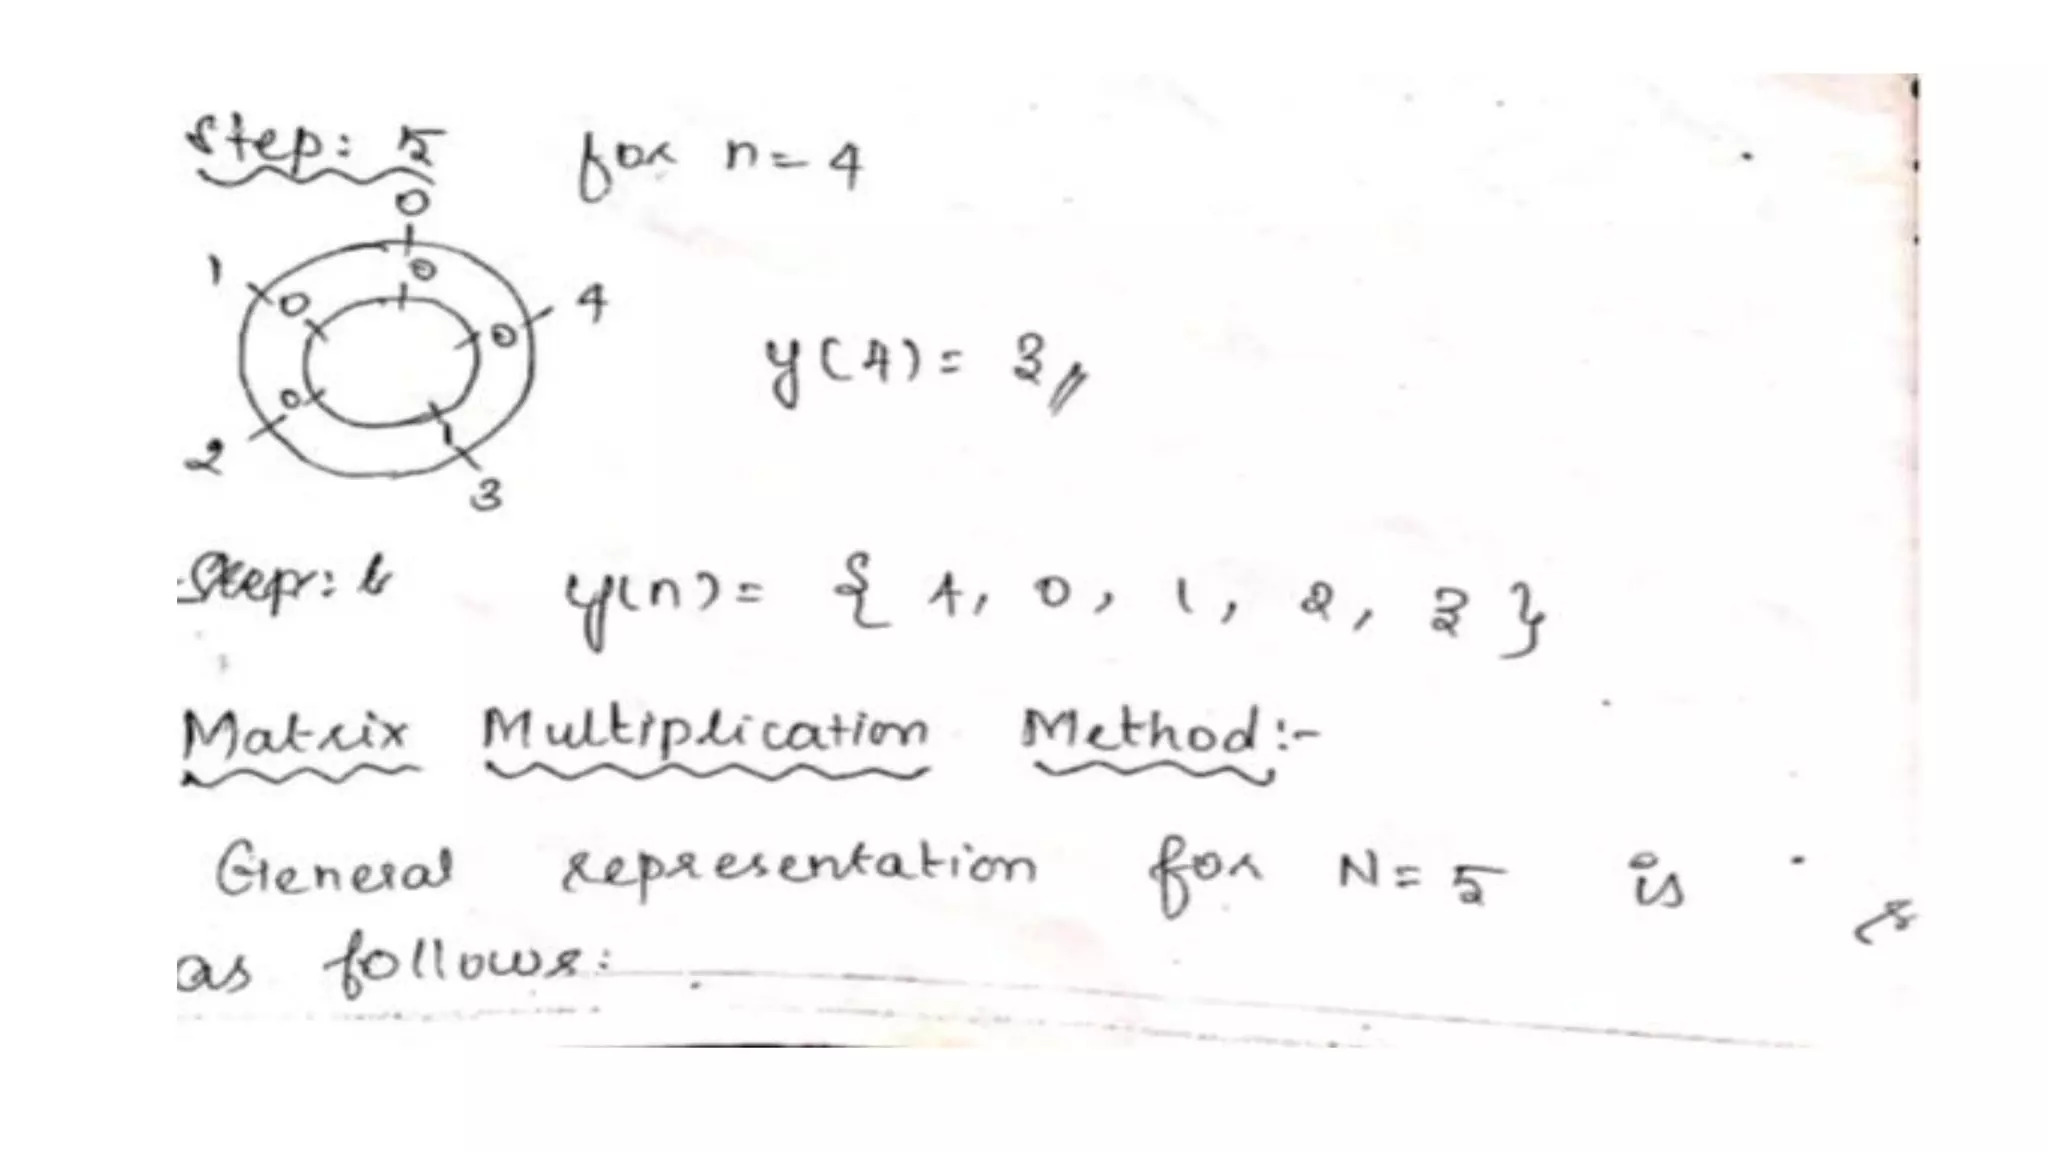 Step: 5 for n=4
0
0
1 0 4
0
y(4)= 3
0
1
2
3
Step: 6 y(n)= { 4, 0, 1, 2, 3 }
Matrix Multiplication Method:-
General representation for N=5 is
as follows: